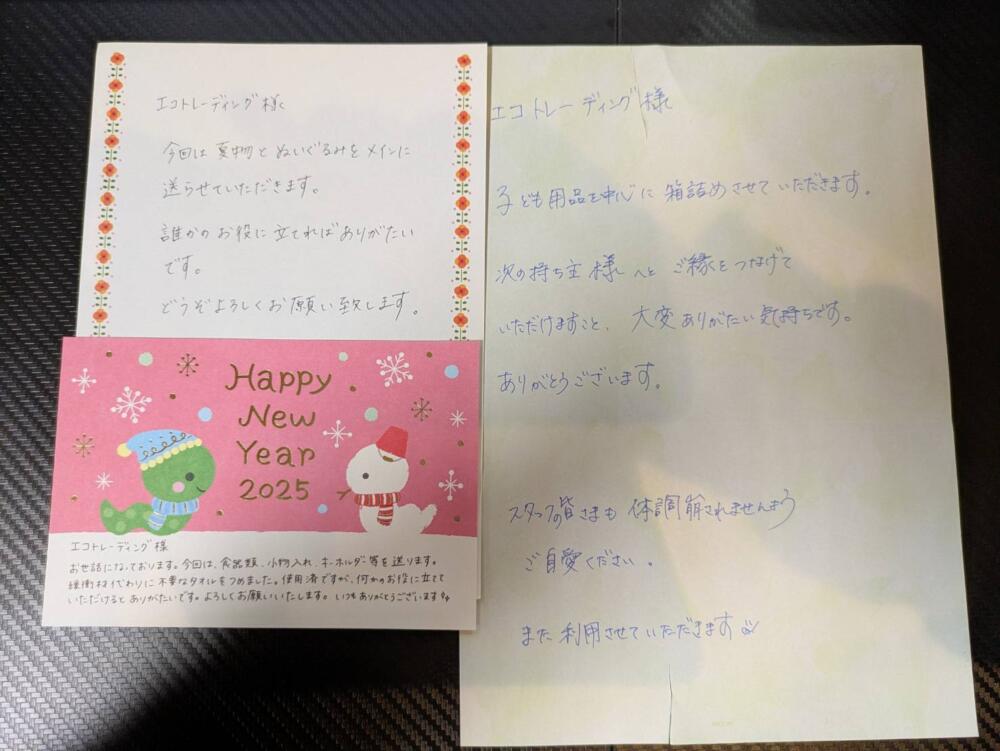 エコトレーディング様
今回は夏物とぬいぐるみをメインに
送らせていただきます。
誰かのお役に立てればありがたい
です。
どうぞよろしくお願い致します。
Happy
New
Year
2025
エコトレーディング様
お世話になっております。今回は、食器類、小物入れ、キーホルダー等を送ります。
緩衝材代わりに不要なタオルをつめました。使用済ですが、何かのお役に立てて
いただけるとありがたいです。よろしくお願いいたします。いつもありがとうございます
エコトレーディング様
子ども用品を中心に箱詰めさせていただきます。
次の持ち主様へとご縁をつなげて
いただけますこと、大変ありがたい気持ちです。
ありがとうございます。
スタッフの皆さまも体調崩されませんよう
ご自愛ください。
また利用させていただきます